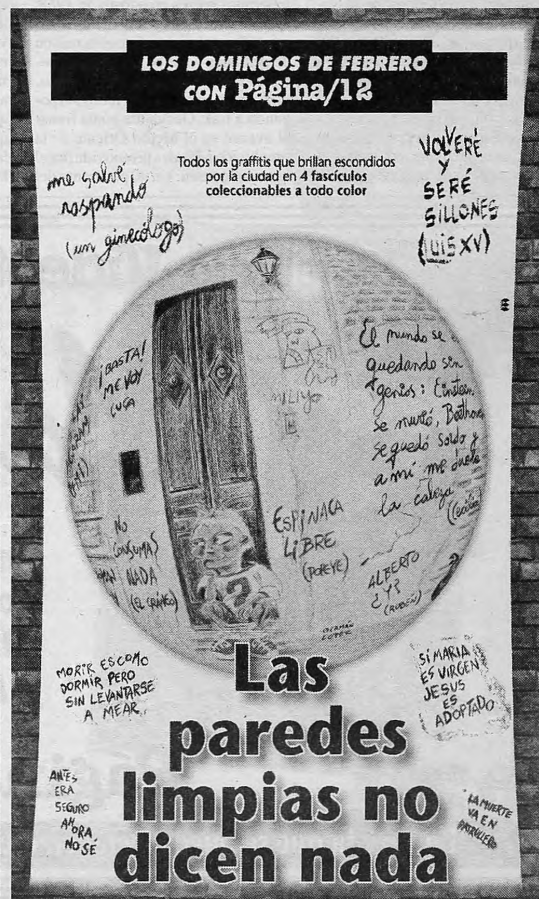 LOS DOMINGOS DE FEBRERO
CON Página/12
Todos los graffitis que brillan escondidos
por la ciudad en 4 fascículos
coleccionables a todo color
me salvé
raspando
(un ginecólogo)
VOLVERÉ
Y
SERÉ
SILLONES
(LUIS XV)
¡BASTA!
ME VOY
El mundo se
quedando sin
genios: Einstein
se murió, Beethoven
se quedó sordo y
a mí me duele
la cabeza
NO
CONSUMAS
NADA
ESPINACA
LIBRE
(POPEYE)
ALBERTO
¿Y?
(RUBÉN)
GERMÁN
MORIR ES COMO
DORMIR PERO
SIN LEVANTARSE
A MEAR
SI MARIA
ES VIRGEN
JESUS
ES
ADOPTADO
Las
paredes
limpias no
dicen nada
ANTES
ERA
SEGURO
AHORA
NO SÉ
LA MUERTE
VA EN
PATRULLERO